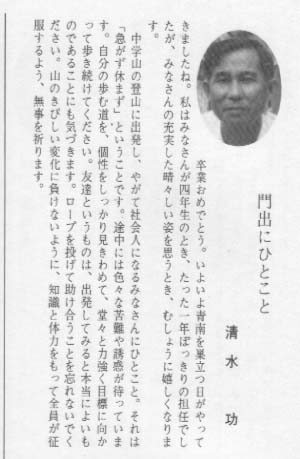 門出にひとこと
清水 功
卒業おめでとう。いよいよ青南を巣立つ日がやって
きましたね。私はみなさんが四年生のとき、たった一年ぽっきりの担任でし
たが、みなさんの充実した晴々しい姿を思うとき、むしょうに嬉しくなりま
す。
中学山の登山に出発し、やがて社会人になるみなさんにひとこと。それは
「急がず休まず」ということです。途中には色々な苦難や誘惑が待っていま
す。自分の歩む道を、個性をしっかり見きわめて、堂々と力強く目標に向か
って歩き続けてください。友達というものは、出発してみると本当によいも
のであることにも気づきます。ロープを投げて助け合うことを忘れないでく
ださい。山のきびしい変化に負けないように、知識と体力をもって全員が征
服するよう、無事を祈ります。